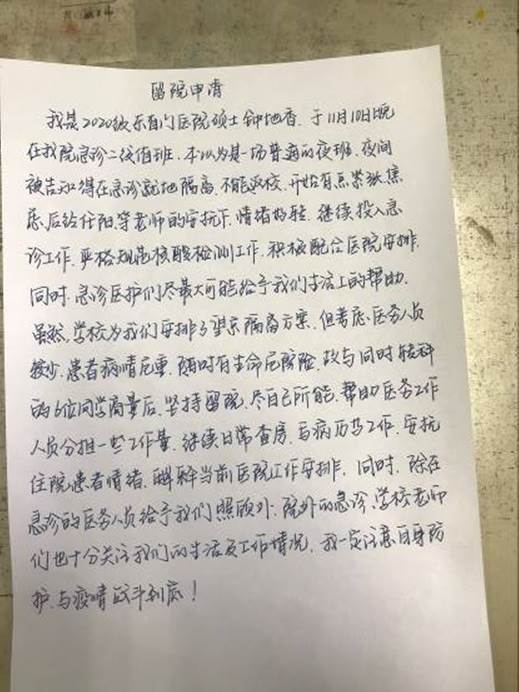 留院申请
我是2020级东直门医院硕士钟地香,于11月10日晚
在我院急诊二线值班,本以为是一场普通的夜班,夜间
被告知得在急诊就地隔离,不能返校,开始有点紧张焦
虑,后经任阳等老师的安抚下,情绪好转,继续投入急
诊工作,严格规范核酸检测工作,积极配合医院安排,
同时,急诊医护们尽最大可能给予我们生活上的帮助。
虽然,学校为我们安排了望京隔离方案,但考虑医务人员
较少,患者病情危重,随时有生命危险,故与同时转科
的6位同学商量后,坚持留院,尽自己所能,帮助医务工作
人员分担一些工作量,继续日常查房,写病历等工作,安抚
住院患者情绪,解释当前医院工作安排,同时,除在
急诊的医务人员给予我们照顾外,院外的急诊、学校老师
们也十分关注我们的生活及工作情况,我一定注意自身防
护,与疫情战斗到底!